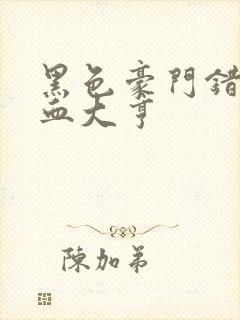 黑色豪門錯
血大亨
陳加弟